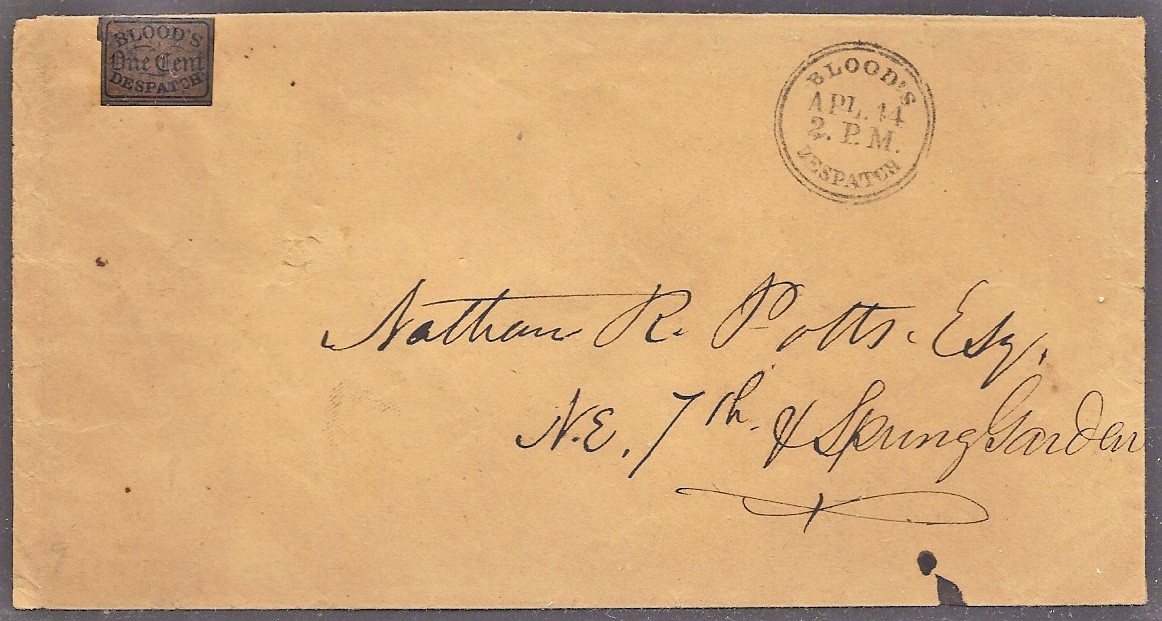 BLOOD'S
One Cent
DESPATCH
BLOOD'S
APL. 14
2. P.M.
DESPATCH
Nathan R. Potts. Esq.
N.E. 7th. & Spring Garden